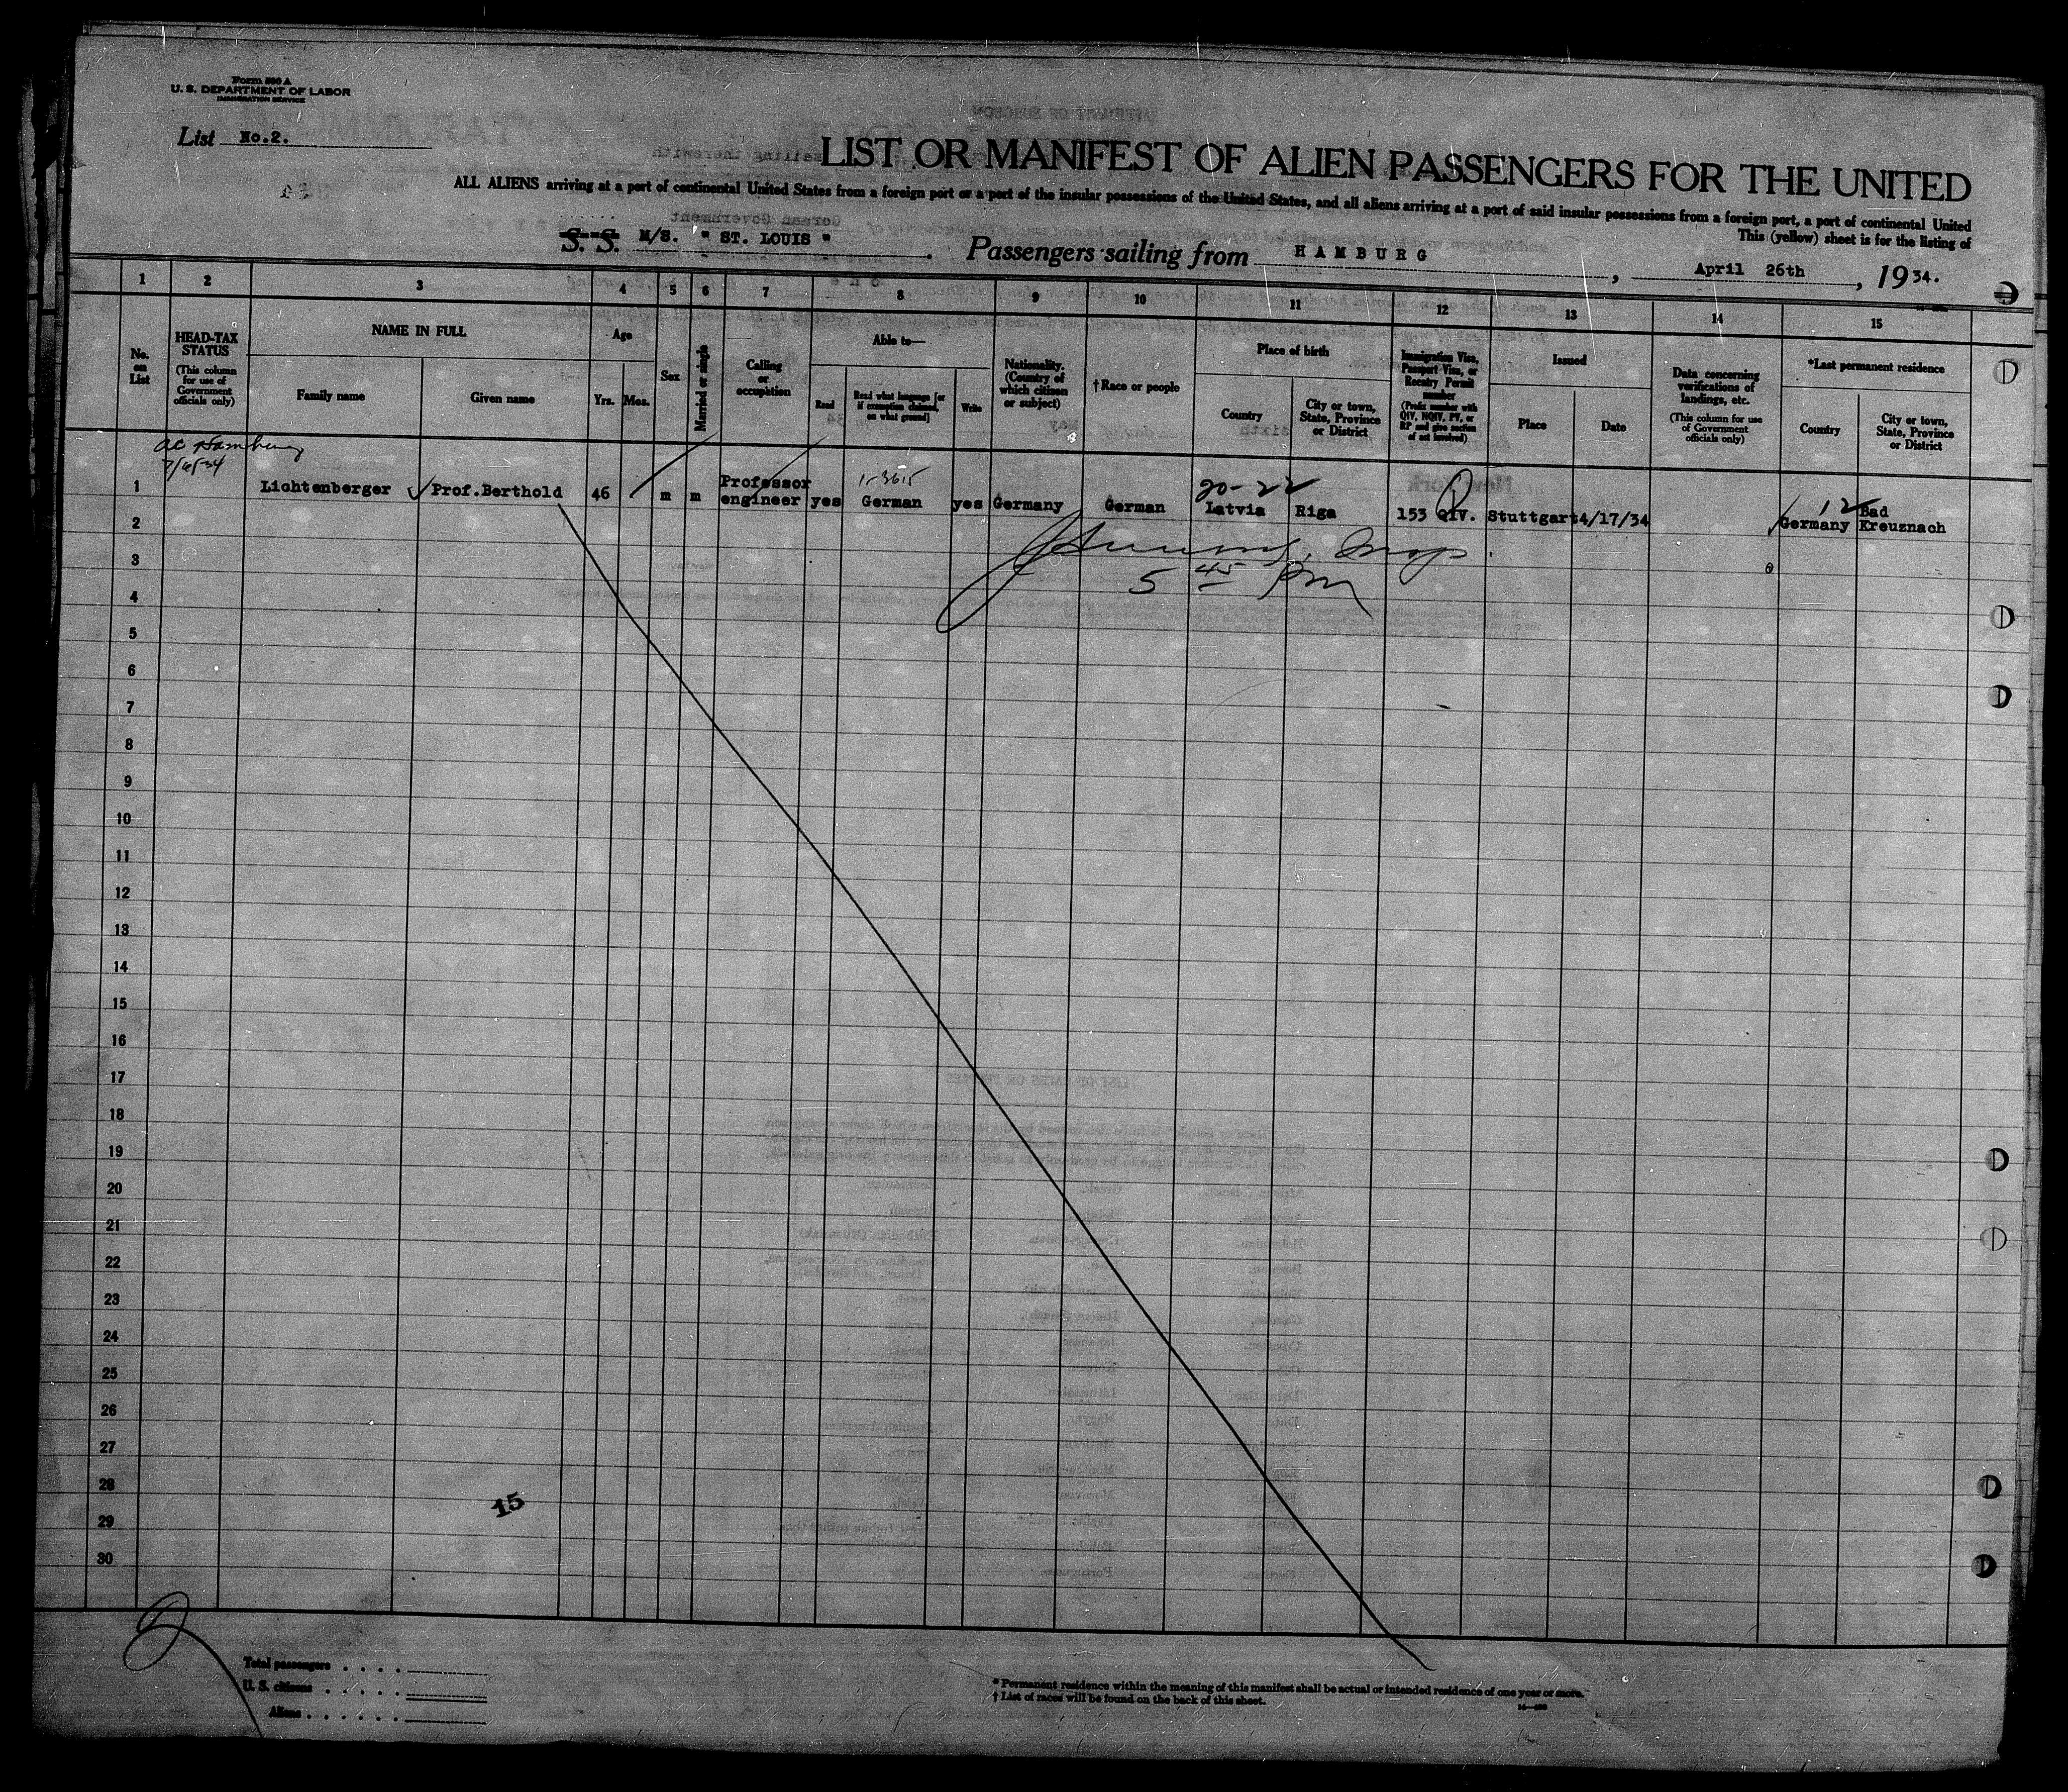 Form 500 A
U. S. DEPARTMENT OF LABOR
IMMIGRATION SERVICE
List No.2.
LIST OR MANIFEST OF ALIEN PASSENGERS FOR THE UNITED
ALL ALIENS arriving at a port of continental United States from a foreign port or a port of the insular possessions of the United States, and all aliens arriving at a port of said insular possessions from a foreign port, a port of continental United
This (yellow) sheet is for the listing of
S. S. M/S. " ST. LOUIS " . Passengers sailing from HAMBURG , April 26th , 19 34.
1 2 3 4 5 6 7 8 9 10 11 12 13 14 15
No. on List
HEAD-TAX STATUS
(This column for use of Government officials only)
NAME IN FULL
Family name
Given name
Age
Yrs. Mos.
Sex
Married or single
Calling or occupation
Able to—
Read
Read what language [or if exemption claimed, on what ground]
Write
Nationality. (Country of which citizen or subject)
† Race or people
Place of birth
Country
City or town, State, Province or District
Immigration Visa, Passport Visa, or Reentry Permit number
(Prefix number with QIV, NQIV, PV, or RP and give section of act involved)
Issued
Place
Date
Data concerning verifications of landings, etc.
(This column for use of Government officials only)
*Last permanent residence
Country
City or town, State, Province or District
ac Hamburg
1-3615
20-22
12
1 Lichtenberger Prof.Berthold 46 m m Professor engineer yes German yes Germany German Latvia Riga 153 QIV. Stuttgart 4/17/34 Germany Bad Kreuznach
2
5 45 Pm
3
4
5
6
7
8
9
10
11
12
13
14
15
16
17
18
19
20
21
22
23
24
25
26
27
28
15
29
30
Total passengers
U. S. citizens
Aliens
* Permanent residence within the meaning of this manifest shall be actual or intended residence of one year or more.
† List of races will be found on the back of this sheet.